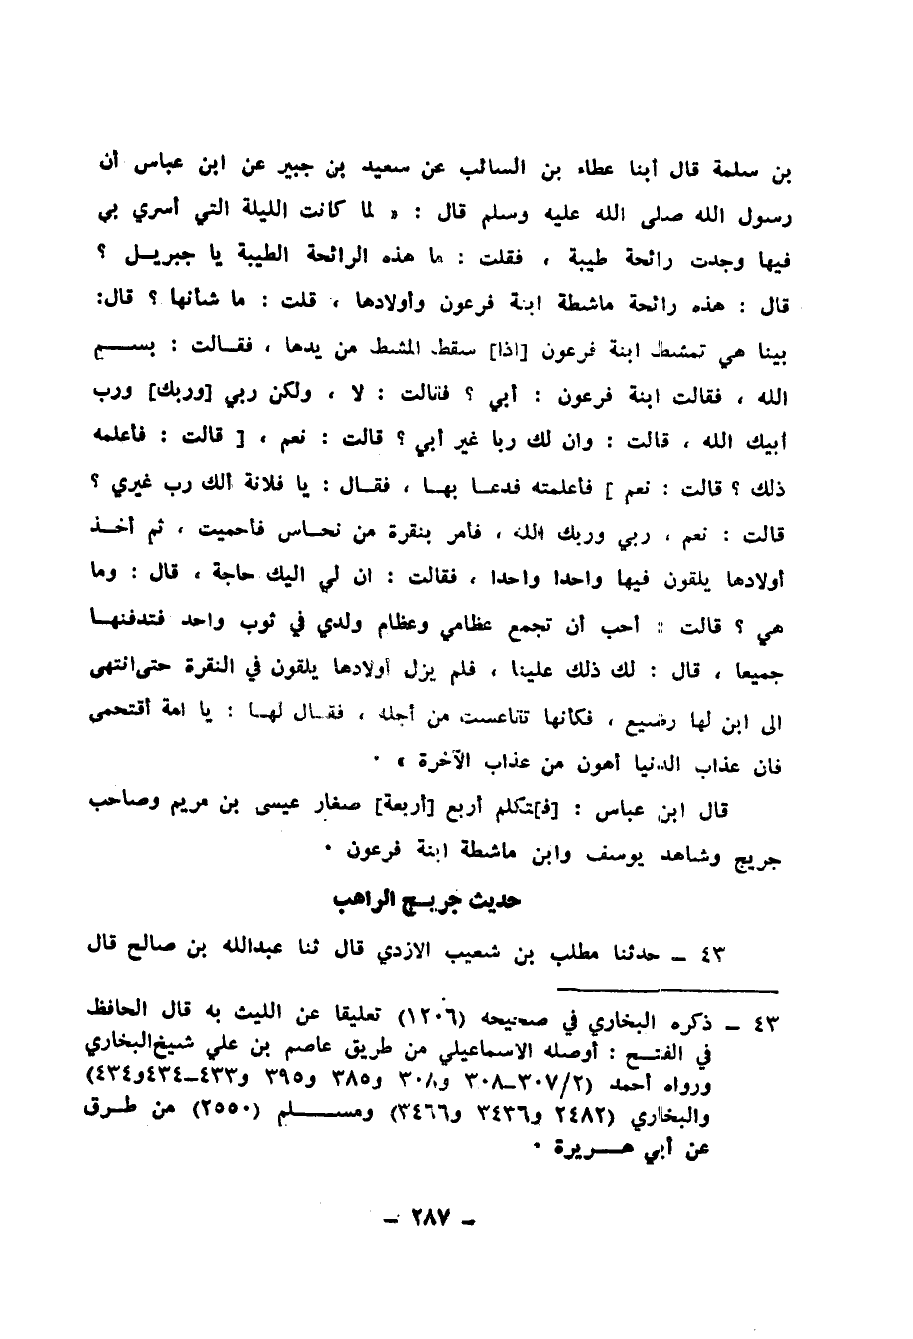 بن سلمة قال أبنا عطاء بن السائب عن سعيد بن جبير عن ابن عباس أن
رسول الله صلى الله عليه وسلم قال : « لما كانت الليلة التي أسري بي
فيها وجدت رائحة طيبة ، فقلت : ما هذه الرائحة الطيبة يا جبريل ؟
قال : هذه رائحة ماشطة ابنة فرعون وأولادها ، قلت : ما شأنها ؟ قال:
بينا هي تمشط ابنة فرعون [اذا] سقط المشط من يدها ، فقالت : بسم
الله ، فقالت ابنة فرعون : أبي ؟ فقالت : لا ، ولكن ربي [وربك] ورب
أبيك الله ، قالت : وان لك ربا غير أبي ؟ قالت : نعم ، [ قالت : فأعلمه
ذلك ؟ قالت : نعم ] فأعلمته فدعا بها ، فقال : يا فلانة ألك رب غيري ؟
قالت : نعم ، ربي وربك الله ، فأمر بنقرة من نحاس فأحميت ، ثم أخذ
أولادها يلقون فيها واحدا واحدا ، فقالت : ان لي اليك حاجة ، قال : وما
هي ؟ قالت : أحب أن تجمع عظامي وعظام ولدي في ثوب واحد فتدفنها
جميعا ، قال : لك ذلك علينا ، فلم يزل أولادها يلقون في النقرة حتى انتهى
الى ابن لها رضيع ، فكأنها تقاعست من أجله ، فقال لها : يا امة أقتحمى
فان عذاب الدنيا أهون من عذاب الآخرة » ·
قال ابن عباس : [ف]تكلم أربع [أربعة] صغار عيسى بن مريم وصاحب
جريج وشاهد يوسف وابن ماشطة ابنة فرعون ·
حديث جريج الراهب
٤٣ ــ حدثنا مطلب بن شعيب الازدي قال ثنا عبدالله بن صالح قال
٤٣ ــ ذكره البخاري في صحيحه (١٢٠٦) تعليقا عن الليث به قال الحافظ
في الفتح : أوصله الاسماعيلي من طريق عاصم بن علي شيخ البخاري
ورواه أحمد (٣٠٧/٢ــ٣٠٨ و٣٠٨ و٣٨٥ و٣٩٥ و٤٣٣ــ٤٣٤و٤٣٤)
والبخاري (٢٤٨٢ و٣٤٣٦ و٣٤٦٦) ومسلم (٢٥٥٠) من طرق
عن أبي هريرة ·
ــ ٢٨٧ ــ